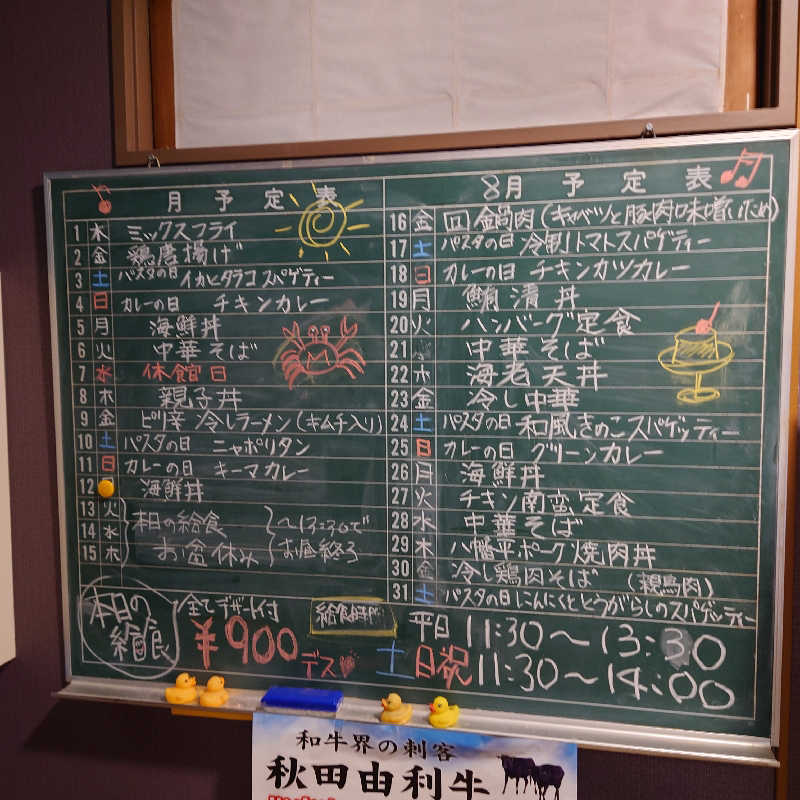 月 予 定 表
1 木 ミックスフライ
2 金 鶏唐揚げ
3 土 パスタの日 イカとタラコスパゲティー
4 日 カレーの日 チキンカレー
5 月 海鮮丼
6 火 中華そば
7 水 休館日
8 木 親子丼
9 金 ピリ辛 冷しラーメン (キムチ入り)
10 土 パスタの日 ニャポリタン
11 日 カレーの日 キーマカレー
12 海鮮丼
13 火
14 水 本日の給食 〜13:30で
15 木 お盆休み お昼終了
8月 予 定 表
16 金 回鍋肉 (キャベツと豚肉味噌いため)
17 土 パスタの日 冷製トマトスパゲティー
18 日 カレーの日 チキンカツカレー
19 月 鮪漬丼
20 火 ハンバーグ定食
21 中華そば
22 木 海老天丼
23 金 冷し中華
24 土 パスタの日 和風きのこスパゲッティー
25 日 カレーの日 グリーンカレー
26 月 海鮮丼
27 火 チキン南蛮定食
28 水 中華そば
29 木 八幡平ポーク焼肉丼
30 金 冷し鶏肉そば (親鳥肉)
31 土 パスタの日 にんにくととうがらしのスパゲッティー
本日の
給食
全てデザート付
¥900デス
給食時間
平日 11:30〜13:30
土日祝 11:30〜14:00
和牛界の刺客
秋田由利牛